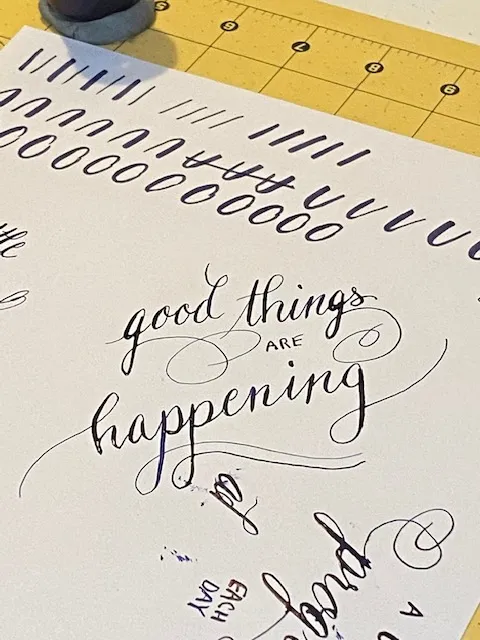 good things
ARE
happening
EACH
DAY
A